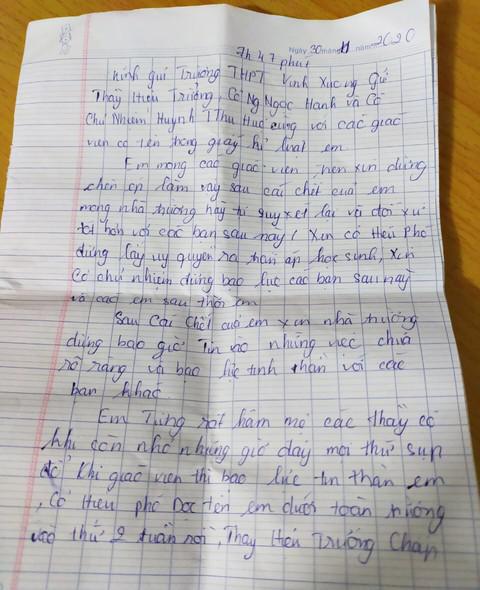 7h 47 phút Ngày 30 tháng 11 năm 2020
Kính gửi Trường THPT Vĩnh Xương Gửi
Thầy Hiệu Trưởng, Cô Ng Ngọc Hạnh và Cô
Chủ Nhiệm Huỳnh T Thu Huệ cùng với các giáo
viên có tên trong giấy kỉ luật em
Em mong các giáo viên, nên xin đừng
chèn ép làm vậy sau cái chết của em
mong nhà trường hãy tự suy xét lại và đối xử
tốt hơn với các bạn sau này! Xin cô Hiệu Phó
đừng lấy uy quyền ra đàn áp học sinh, xin
Cô chủ nhiệm đừng bạo lực các bạn sau này
và các em sau thời em
Sau Cái Chết của em xin nhà trường
đừng bao giờ Tin vào những việc chưa
rõ ràng và bạo lực tinh thần với các
bạn khác.
Em Từng rất hâm mộ các thầy cô
khi còn nhỏ nhưng giờ đây mọi thứ sụp
đổ Khi giáo viên thì bạo lực tin thần em
, Cô Hiệu phó Đọc tên em dưới toàn trường
vào thứ 2 tuần rồi, Thầy Hiệu Trưởng Chấp